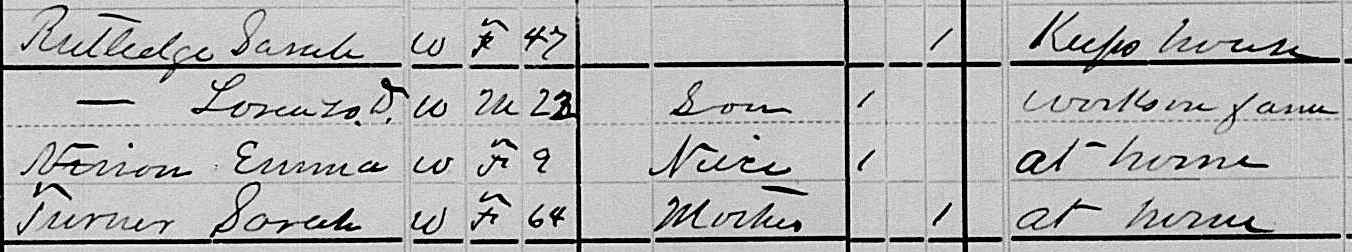 Rutledge Sarah W F 47 1 Keeps house
— Lorenzo D. W M 22 Son 1 works on farm
Emma W F 9 Niece 1 at home
Turner Sarah W F 64 Mother 1 at home